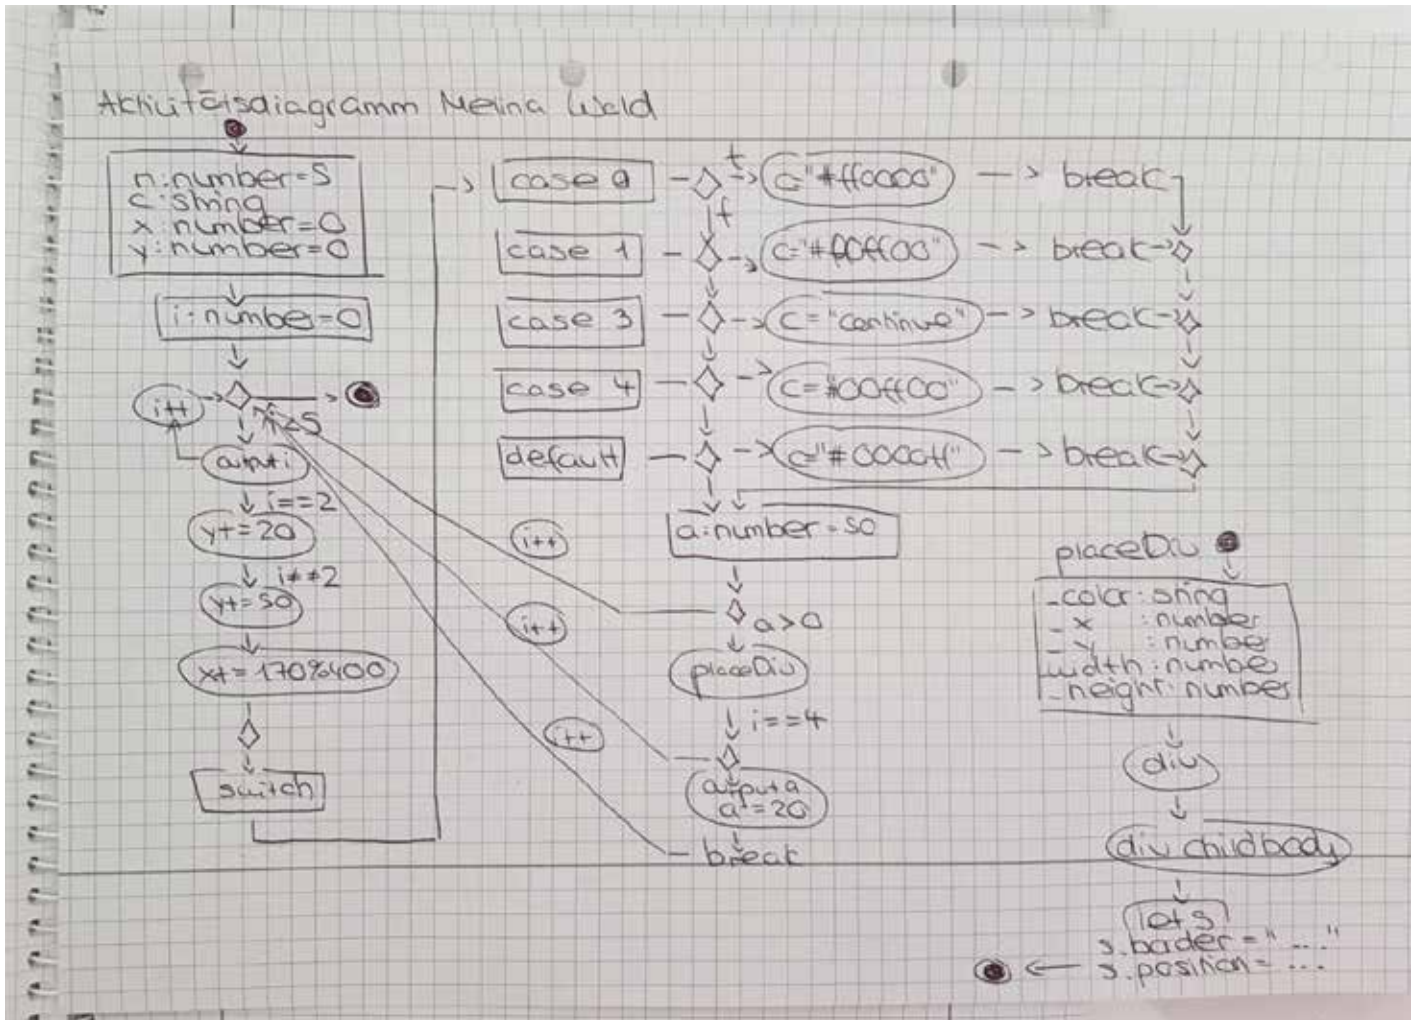 Aktivitätsdiagramm Melina Wald
n:number=5
c:string
x:number=0
y:number=0
i:number=0
i++
i<5
output i
i==2
y+=20
i≠=2
y+=50
x+=170%400
switch
case 0
t
c="#ff0000"
break
f
case 1
c="#ff0000"
break
case 3
c="continue"
break
case 4
c=#00ff00"
break
default
c="#0000ff"
break
a:number=50
i++
a>0
i++
placeDiv
i==4
i++
output a
a-=20
break
placeDiv
_color:string
_x :number
_y :number
_width:number
_height:number
div
div childbody
let s
s.border="...."
s.position=...